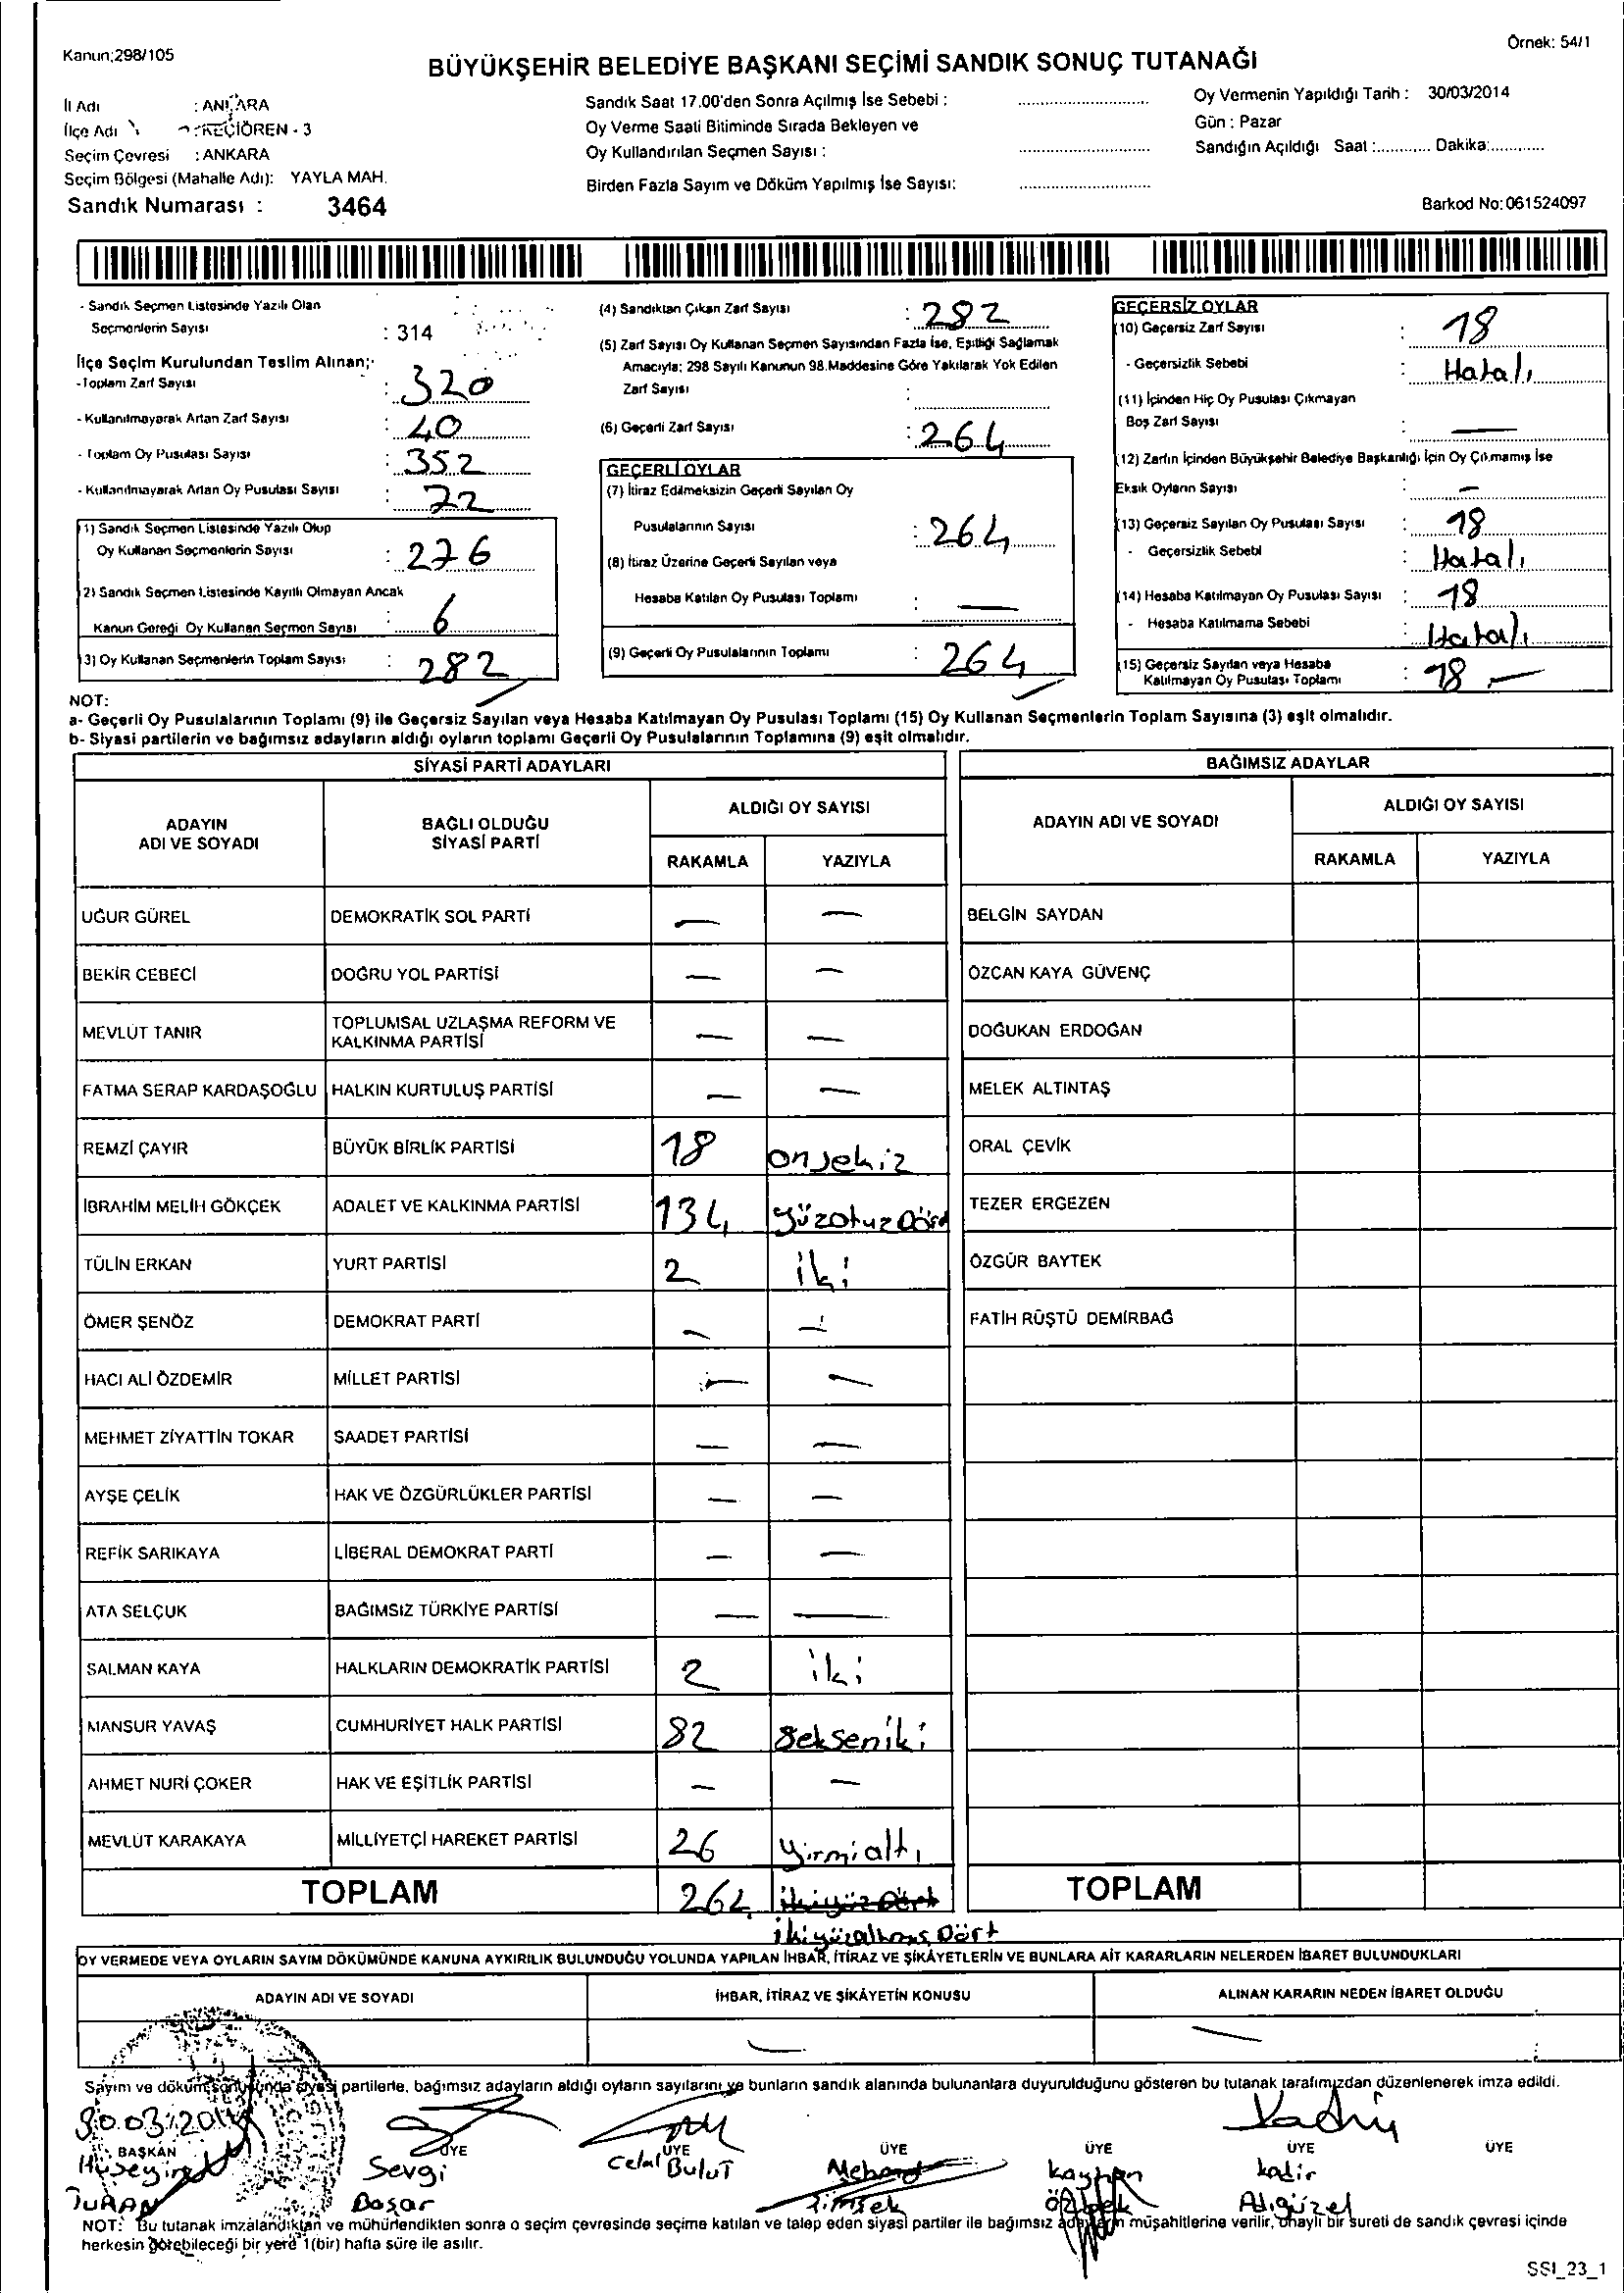 Kanun;298/105
Örnek: 54/1
BÜYÜKŞEHİR BELEDİYE BAŞKANI SEÇİMİ SANDIK SONUÇ TUTANAĞI
İl Adı : ANKARA
İlçe Adı : KEÇİÖREN - 3
Seçim Çevresi : ANKARA
Seçim Bölgesi (Mahalle Adı): YAYLA MAH.
Sandık Numarası : 3464
Sandık Saat 17.00'den Sonra Açılmış İse Sebebi :
Oy Verme Saati Bitiminde Sırada Bekleyen ve
Oy Kullandırılan Seçmen Sayısı :
Birden Fazla Sayım ve Döküm Yapılmış İse Sayısı:
Oy Vermenin Yapıldığı Tarih : 30/03/2014
Gün : Pazar
Sandığın Açıldığı Saat :............ Dakika:............
Barkod No: 061524097
- Sandık Seçmen Listesinde Yazılı Olan
Seçmenlerin Sayısı : 314
İlçe Seçim Kurulundan Teslim Alınan;
- Toplam Zarf Sayısı : 320
- Kullanılmayarak Artan Zarf Sayısı : 40
- Toplam Oy Pusulası Sayısı : 352
- Kullanılmayarak Artan Oy Pusulası Sayısı : 72
1) Sandık Seçmen Listesinde Yazılı Olup
Oy Kullanan Seçmenlerin Sayısı : 276
2) Sandık Seçmen Listesinde Kayıtlı Olmayan Ancak
Kanun Gereği Oy Kullanan Seçmen Sayısı : 6
3) Oy Kullanan Seçmenlerin Toplam Sayısı : 282
(4) Sandıktan Çıkan Zarf Sayısı : 282
(5) Zarf Sayısı Oy Kullanan Seçmen Sayısından Fazla İse, Eşitliği Sağlamak
Amacıyla; 298 Sayılı Kanunun 98.Maddesine Göre Yakılarak Yok Edilen
Zarf Sayısı :
(6) Geçerli Zarf Sayısı : 264
GEÇERLİ OYLAR
(7) İtiraz Edilmeksizin Geçerli Sayılan Oy
Pusulalarının Sayısı : 264
(8) İtiraz Üzerine Geçerli Sayılan veya
Hesaba Katılan Oy Pusulası Toplamı : —
(9) Geçerli Oy Pusulalarının Toplamı : 264
GEÇERSİZ OYLAR
(10) Geçersiz Zarf Sayısı : 18
- Geçersizlik Sebebi : Hatalı
(11) İçinden Hiç Oy Pusulası Çıkmayan
Boş Zarf Sayısı : —
(12) Zarfın İçinden Büyükşehir Belediye Başkanlığı İçin Oy Çıkmamış İse
Eksik Oyların Sayısı : —
(13) Geçersiz Sayılan Oy Pusulası Sayısı : 18
- Geçersizlik Sebebi : Hatalı
(14) Hesaba Katılmayan Oy Pusulası Sayısı : 18
- Hesaba Katılmama Sebebi : Hatalı
(15) Geçersiz Sayılan veya Hesaba
Katılmayan Oy Pusulası Toplamı : 18
NOT:
a- Geçerli Oy Pusulalarının Toplamı (9) ile Geçersiz Sayılan veya Hesaba Katılmayan Oy Pusulası Toplamı (15) Oy Kullanan Seçmenlerin Toplam Sayısına (3) eşit olmalıdır.
b- Siyasi partilerin ve bağımsız adayların aldığı oyların toplamı Geçerli Oy Pusulalarının Toplamına (9) eşit olmalıdır.
SİYASİ PARTİ ADAYLARI
BAĞIMSIZ ADAYLAR
ADAYIN ADI VE SOYADI
BAĞLI OLDUĞU SİYASİ PARTİ
ALDIĞI OY SAYISI
RAKAMLA YAZIYLA
ADAYIN ADI VE SOYADI
ALDIĞI OY SAYISI
RAKAMLA YAZIYLA
UĞUR GÜREL DEMOKRATİK SOL PARTİ — — BELGİN SAYDAN
BEKİR CEBECİ DOĞRU YOL PARTİSİ — — ÖZCAN KAYA GÜVENÇ
MEVLÜT TANIR TOPLUMSAL UZLAŞMA REFORM VE KALKINMA PARTİSİ — — DOĞUKAN ERDOĞAN
FATMA SERAP KARDAŞOĞLU HALKIN KURTULUŞ PARTİSİ — — MELEK ALTINTAŞ
REMZİ ÇAYIR BÜYÜK BİRLİK PARTİSİ 18 onsekiz ORAL ÇEVİK
İBRAHİM MELİH GÖKÇEK ADALET VE KALKINMA PARTİSİ 134 yüzotuzDört TEZER ERGEZEN
TÜLİN ERKAN YURT PARTİSİ 2 iki ÖZGÜR BAYTEK
ÖMER ŞENÖZ DEMOKRAT PARTİ — — FATİH RÜŞTÜ DEMİRBAĞ
HACI ALİ ÖZDEMİR MİLLET PARTİSİ — —
MEHMET ZİYATTİN TOKAR SAADET PARTİSİ — —
AYŞE ÇELİK HAK VE ÖZGÜRLÜKLER PARTİSİ — —
REFİK SARIKAYA LİBERAL DEMOKRAT PARTİ — —
ATA SELÇUK BAĞIMSIZ TÜRKİYE PARTİSİ — —
SALMAN KAYA HALKLARIN DEMOKRATİK PARTİSİ 2 iki
MANSUR YAVAŞ CUMHURİYET HALK PARTİSİ 82 Sekseniki
AHMET NURİ ÇOKER HAK VE EŞİTLİK PARTİSİ — —
MEVLÜT KARAKAYA MİLLİYETÇİ HAREKET PARTİSİ 26 Yirmialtı
TOPLAM 264 ikiyüzDört TOPLAM
ikiyüzaltmış Dört
OY VERMEDE VEYA OYLARIN SAYIM DÖKÜMÜNDE KANUNA AYKIRILIK BULUNDUĞU YOLUNDA YAPILAN İHBAR, İTİRAZ VE ŞİKÂYETLERİN VE BUNLARA AİT KARARLARIN NELERDEN İBARET BULUNDUKLARI
ADAYIN ADI VE SOYADI İHBAR, İTİRAZ VE ŞİKÂYETİN KONUSU ALINAN KARARIN NEDEN İBARET OLDUĞU
— —
Sayım ve döküm sonucunda siyasi partilerle, bağımsız adayların aldığı oyların sayılarını ve bunların sandık alanında bulunanlara duyurulduğunu gösteren bu tutanak tarafımızdan düzenlenerek imza edildi.
30.03.2014
BAŞKAN ÜYE ÜYE ÜYE ÜYE ÜYE ÜYE
Hüseyin TURAN
Sevgi Başar
Celal Bulut
Mehmet Şimşek
Kayhan Özbek
Kadir Adıgüzel
NOT: Bu tutanak imzalandıktan ve mühürlendikten sonra o seçim çevresinde seçime katılan ve talep eden siyasi partiler ile bağımsız adayların müşahitlerine verilir, onaylı bir sureti de sandık çevresi içinde
herkesin görebileceği bir yere 1(bir) hafta süre ile asılır.
SSI_23_1